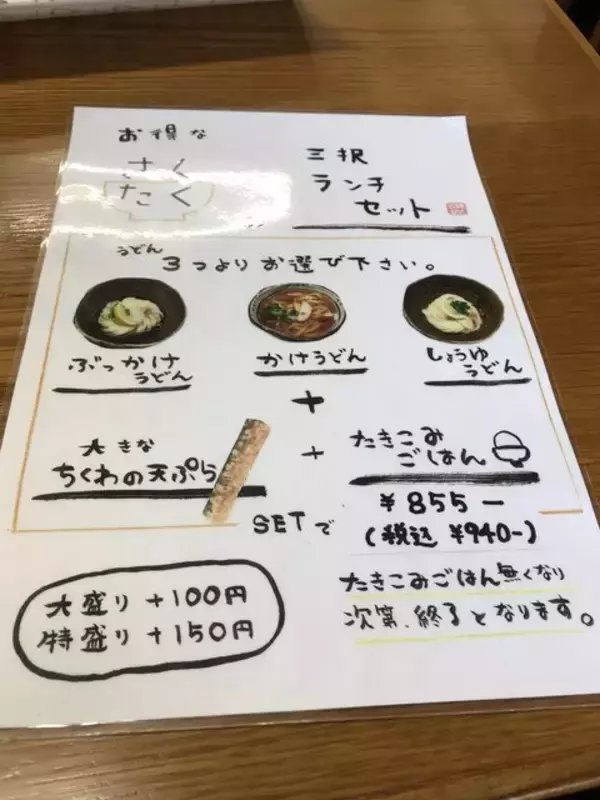 お得な
さく
たく
三択
ランチ
セット
うどん
3つよりお選び下さい。
ぶっかけ
うどん
かけうどん
しょうゆ
うどん
+
大きな
ちくわの天ぷら
+
たきこみ
ごはん
SETで
¥855-
(税込 ¥940-)
大盛り +100円
特盛り +150円
たきこみごはん無くなり
次第、終了となります。